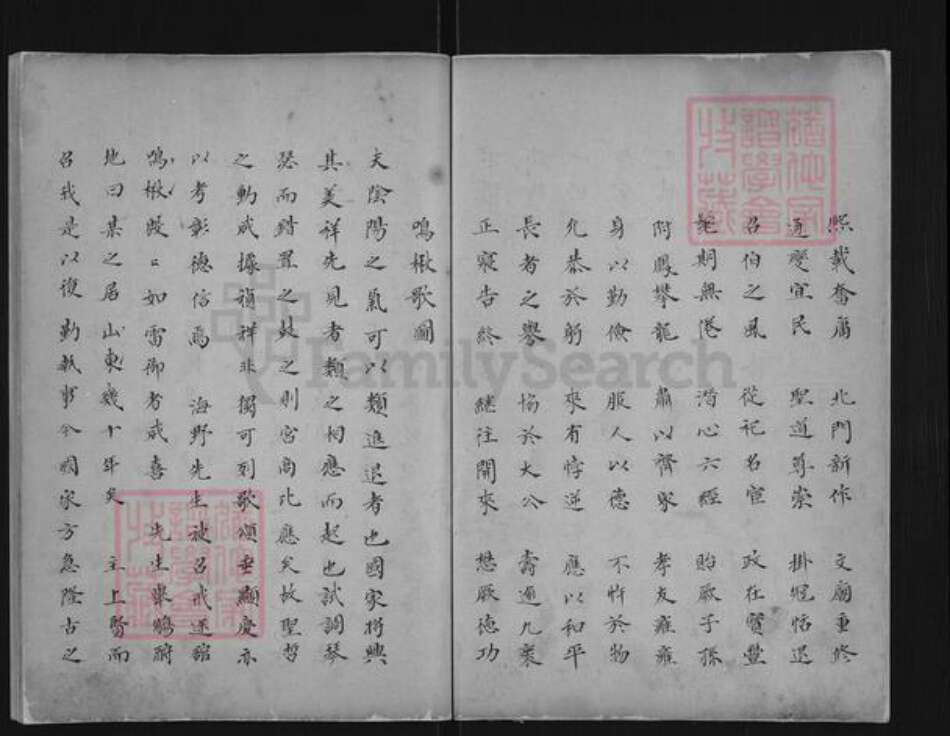 熙載奮庸 北門新作 文廟重修
通變宜民 聖道尊崇 掛冠恬退
召伯之風 從祀名宦 政在寶豐
耄期無倦 潛心六經 貽厥子孫
附鳳攀龍 肅以齊家 孝友雍雍
身以勤儉 服人以德 不忤於物
允恭於躬 來有悖逆 應以和平
長者之譽 恊於大公 壽逾九袠
正寢告終 繼往開來 懋厥德功
鳴楸歌圖
夫陰陽之氣可以類進退者也國家將興
其美祥先見者類之相應而起也試調琴
瑟而錯置之鼓之則宮商比應矣故聖哲
之動咸據禎祥非獨可列歌頌垂顯慶亦
以考彰德信焉 海野先生被召戒逐館
鳴楸殷〻如雷御者咸喜 先生舉觴酹
地曰某之居山東幾十年矣 主上賢而
召我是以復勤執事今國家方急隆古之
FamilySearch